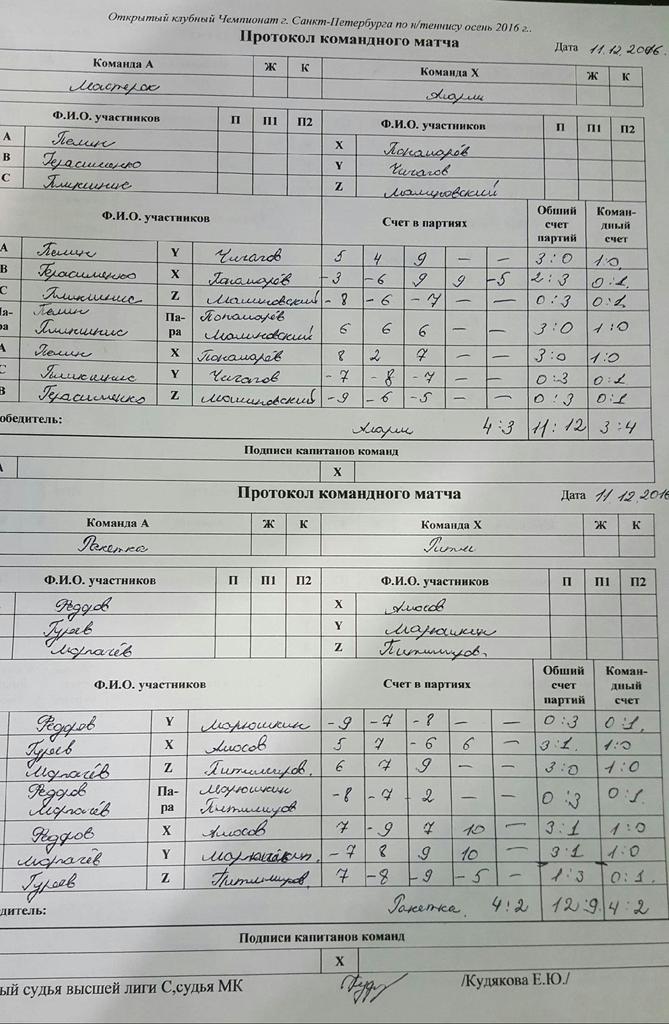 Открытый клубный Чемпионат г. Санкт-Петербурга по н/теннису осень 2016 г..
Протокол командного матча Дата 11.12.2016.
Команда А Ж К Команда Х Ж К
Мастерок
Ф.И.О. участников П П1 П2 Ф.И.О. участников П П1 П2
А Пелин Х Пономарёв
В Герасименко Y Чигагов
С Z Малиновский
Ф.И.О. участников Счет в партиях Общий счет партий Коман-дный счет
А Пелин Y Чигагов 5 4 9 — — 3:0 1:0
В Герасименко Х Пономарёв -3 -6 9 9 -5 2:3 0:1.
С Z Малиновский -8 -6 -7 — — 0:3 0:1.
Па-ра Пелин Па-ра Пономарёв Малиновский 6 6 6 — — 3:0 1:0
А Пелин Х Пономарёв 8 2 7 — — 3:0 1:0
С Y Чигагов -7 -8 -7 — — 0:3 0:1
В Герасименко Z Малиновский -9 -6 -5 — — 0:3 0:1
обедитель: 4:3 11:12 3:4
Подписи капитанов команд
А Х
Протокол командного матча Дата 11.12.2016
Команда А Ж К Команда Х Ж К
Ракетка
Ф.И.О. участников П П1 П2 Ф.И.О. участников П П1 П2
Фёдоров Х Амосов
Гуров Y Марюшкин
Z
Ф.И.О. участников Счет в партиях Общий счет партий Коман-дный счет
Фёдоров Y Марюшкин -9 -7 -8 — — 0:3 0:1.
Гуров Х Амосов 5 7 -6 6 — 3:1. 1:0
Z 6 7 9 — — 3:0 1:0
Фёдоров Па-ра Марюшкин -8 -7 -2 — — 0:3 0:1.
Фёдоров Х Амосов 7 -9 7 10 — 3:1 1:0
Y Марюшкин. -7 8 9 10 — 3:1 1:0
Гуров Z 7 -8 -9 -5 — 1:3 0:1.
дитель: Ракетка. 4:2 12:9 4:2
Подписи капитанов команд
Х
ый судья высшей лиги С,судья МК /Кудякова Е.Ю./